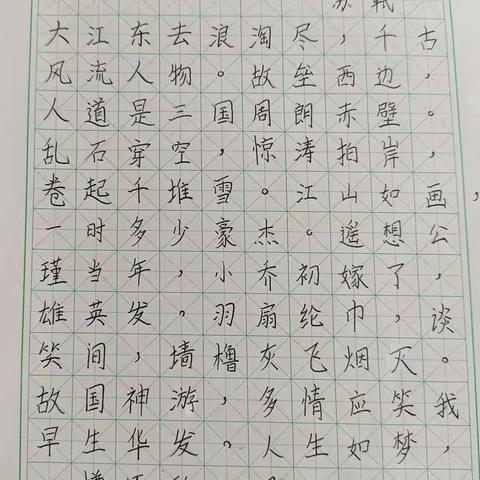 苏轼
大江东去浪淘尽，千古
风流人物。故垒西边，
人道是三国周朗赤壁。
乱石穿空，惊涛拍岸，
卷起千堆雪。江山如画，
一时多少豪杰。遥想公
瑾当年，小乔初嫁了，
雄英发。羽扇纶巾，谈
笑间，墙橹灰飞烟灭。
故国神游，多情应笑我
早生华发。人生如梦，